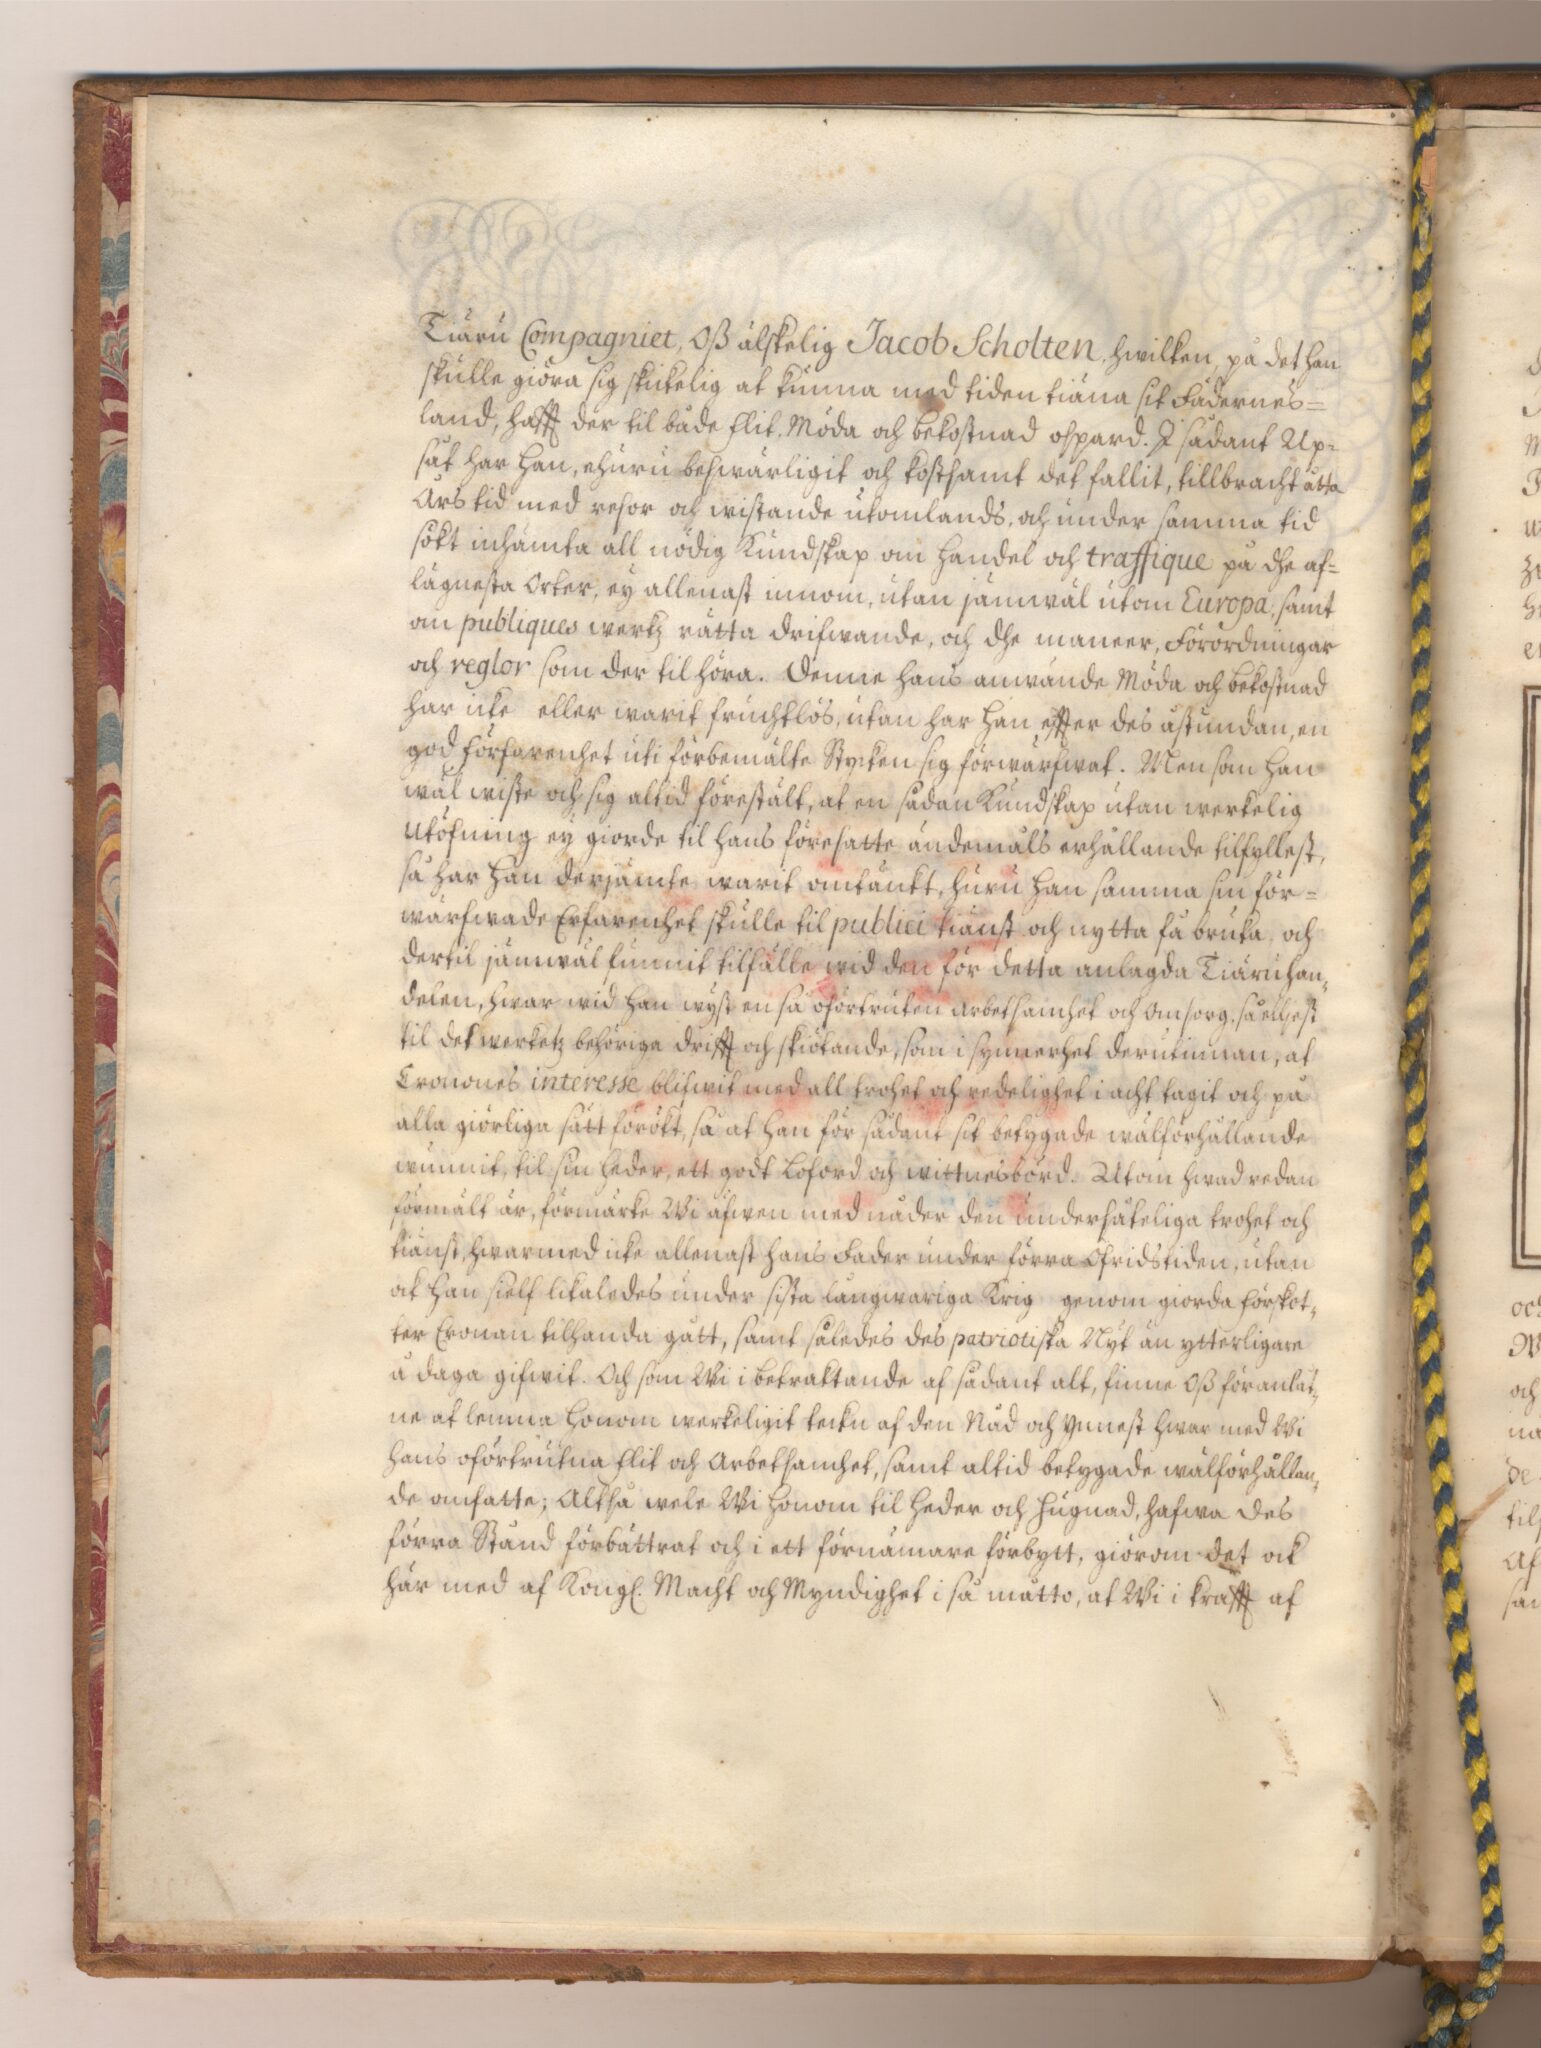 Tiäru Compagniet, Oß älskelig Jacob Scholten, hwilken, på det han
skulle giöra sig skickelig at kunna med tiden tiäna sit Fädernes=
land, hafft der til både flit, Möda och bekostnad ospard. I sådant Up-
såt har han, ehuru beswärligit och kostsamt det fallit, tillbracht åtta
Åhrs tid med resor och wistande utomlands, och under samma tid
sökt inhämta all nödig Kundskap om Handel och traffique på dhe af=
lägnesta Orter, ey allenast innom, utan jämwäl utom Europa, samt
om publiques werkz rätta drifwande, och dhe maneer, Förordningar
och reglor som der til höra. Denne hans anwände Möda och bekostnad
har icke eller warit fruchtlös, utan har han effter des åstundan, en
god förfarenhet uti förbemälte Stycken sig förwärfwat. Men som han
wäl wiste och sig altid förestält, at en sådan Kundskap utan werkelig
Utöfning ey giorde til hans föresatte ändemåls erhållande tilfyllest,
så har han derjämte warit omtänkt, huru han samma sin för=
wärfwade Erfarenhet skulle til publici tiänst och nytta få bruka, och
dertil jämwäl funnit tilfälle wid den för detta anlagda Tiäruhan-
delen, hwar wid han wyst en så oförtruten arbetsamhet och Omsorg, så elliest
til det werketz behöriga drifft och skiötande, som i synnerhet derutinnan, at
Cronones interesse blifwit med all trohet och redelighet i acht tagit och på
alla giörliga sätt förökt, så at han för sådant sit betygade wälförhållande
wunnit, til sin heder, ett godt Loford och wittnesbörd. Utom hwad redan
förmält är, förmärke Wi äfwen med nåder den undersåteliga trohet och
tiänst, hwarmed icke allenast hans Fader under förra Ofridstiden, utan
ock han sielf likaledes under sista långwariga Krig genom giorda förskot-
ter Cronan tilhanda gått, samt således des patriotiska Nyt än ytterligare
å daga gifwit. Och som Wi i betraktande af sådant alt, finne Oß föranlåt-
ne at lemna honom werkeligit teckn af den Nåd och Ynnest hwar med Wi
hans oförtrutna flit och Arbetsamhet, samt altid betygade wälförhållan-
de omfatte; Altså wele Wi honom til heder och hugnad, hafwa des
förra Stånd förbättrat och i ett förnämare förbytt, giörom det ock
här med af Kongl. Macht och Myndighet i så måtto, at Wi i krafft af